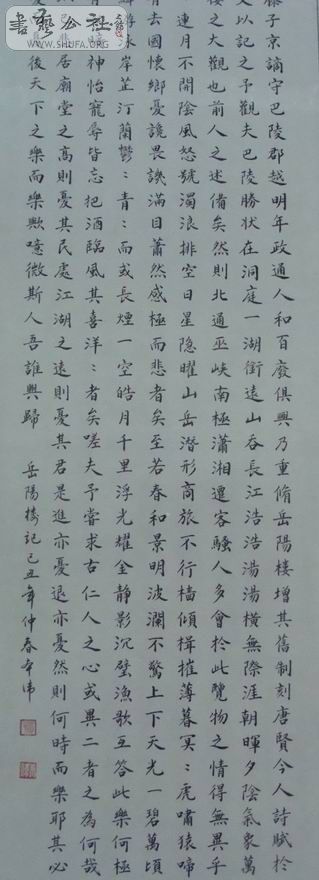 書藝公社
WWW.SHUFA.ORG
滕子京謫守巴陵郡越明年政通人和百廢俱興乃重脩岳陽樓增其舊制刻唐賢今人詩賦於
文以記之予觀夫巴陵勝狀在洞庭一湖銜遠山吞長江浩浩湯湯橫無際涯朝暉夕陰氣象萬
樓之大觀也前人之述備矣然則北通巫峽南極瀟湘遷客騷人多會於此覽物之情得無異乎
連月不開陰風怒號濁浪排空日星隱曜山岳潛形商旅不行檣傾楫摧薄暮冥:虎嘯猿啼
有去國懷鄉憂讒畏譏滿目蕭然感極而悲者矣至若春和景明波瀾不驚上下天光一碧萬頃
游泳岸芷汀蘭鬱:青:而或長煙一空皓月千里浮光耀金靜影沉璧漁歌互答此樂何極
神怡寵辱皆忘把酒臨風其喜洋:者矣嗟夫予嘗求古仁人之心或異二者之為何哉
己悲居廟堂之高則憂其民處江湖之遠則憂其君是進亦憂退亦憂然則何時而樂耶其必
後天下之樂而樂歟噫微斯人吾誰與歸 岳陽樓記己丑年仲春